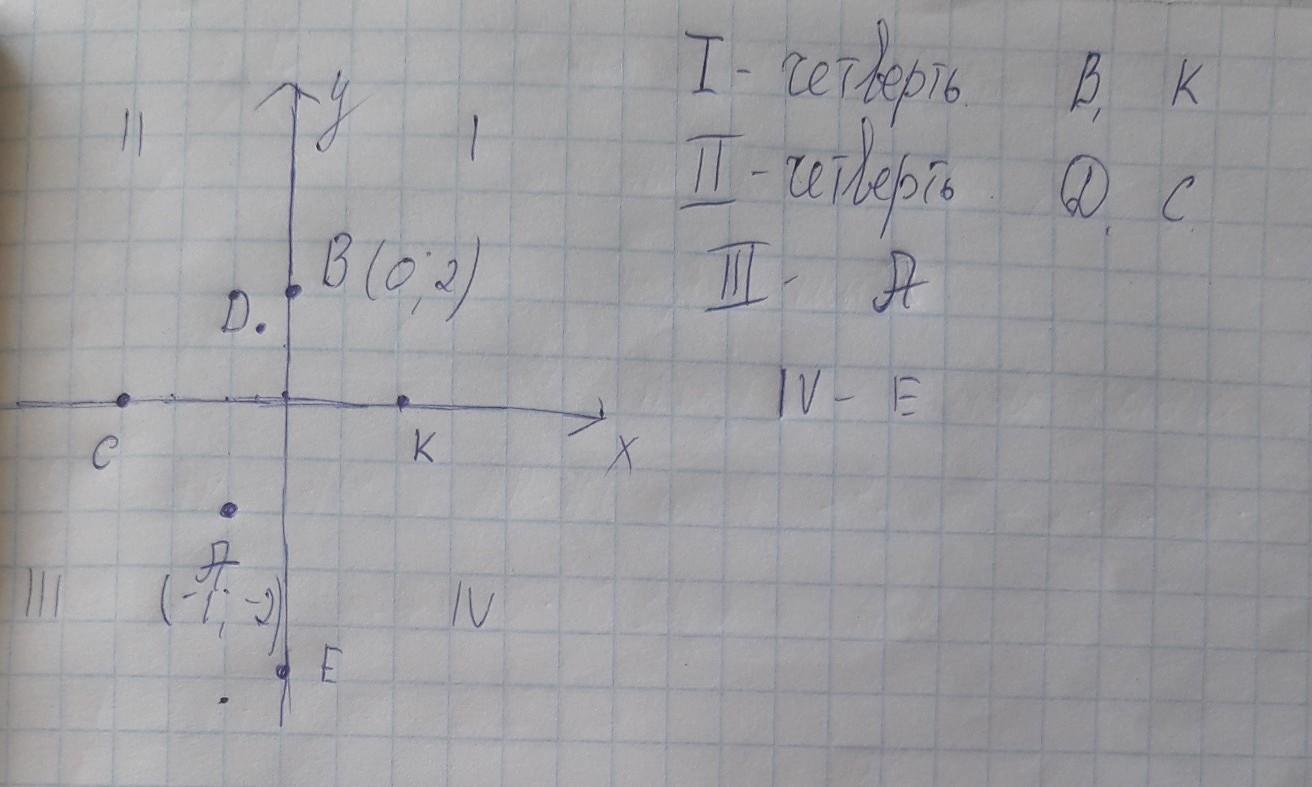 y
II I
I - четверть B, K
II - четверть D, C
B (0; 2)
D.
III - A
IV - E
C K X
A
(-1; -2)
III IV
E